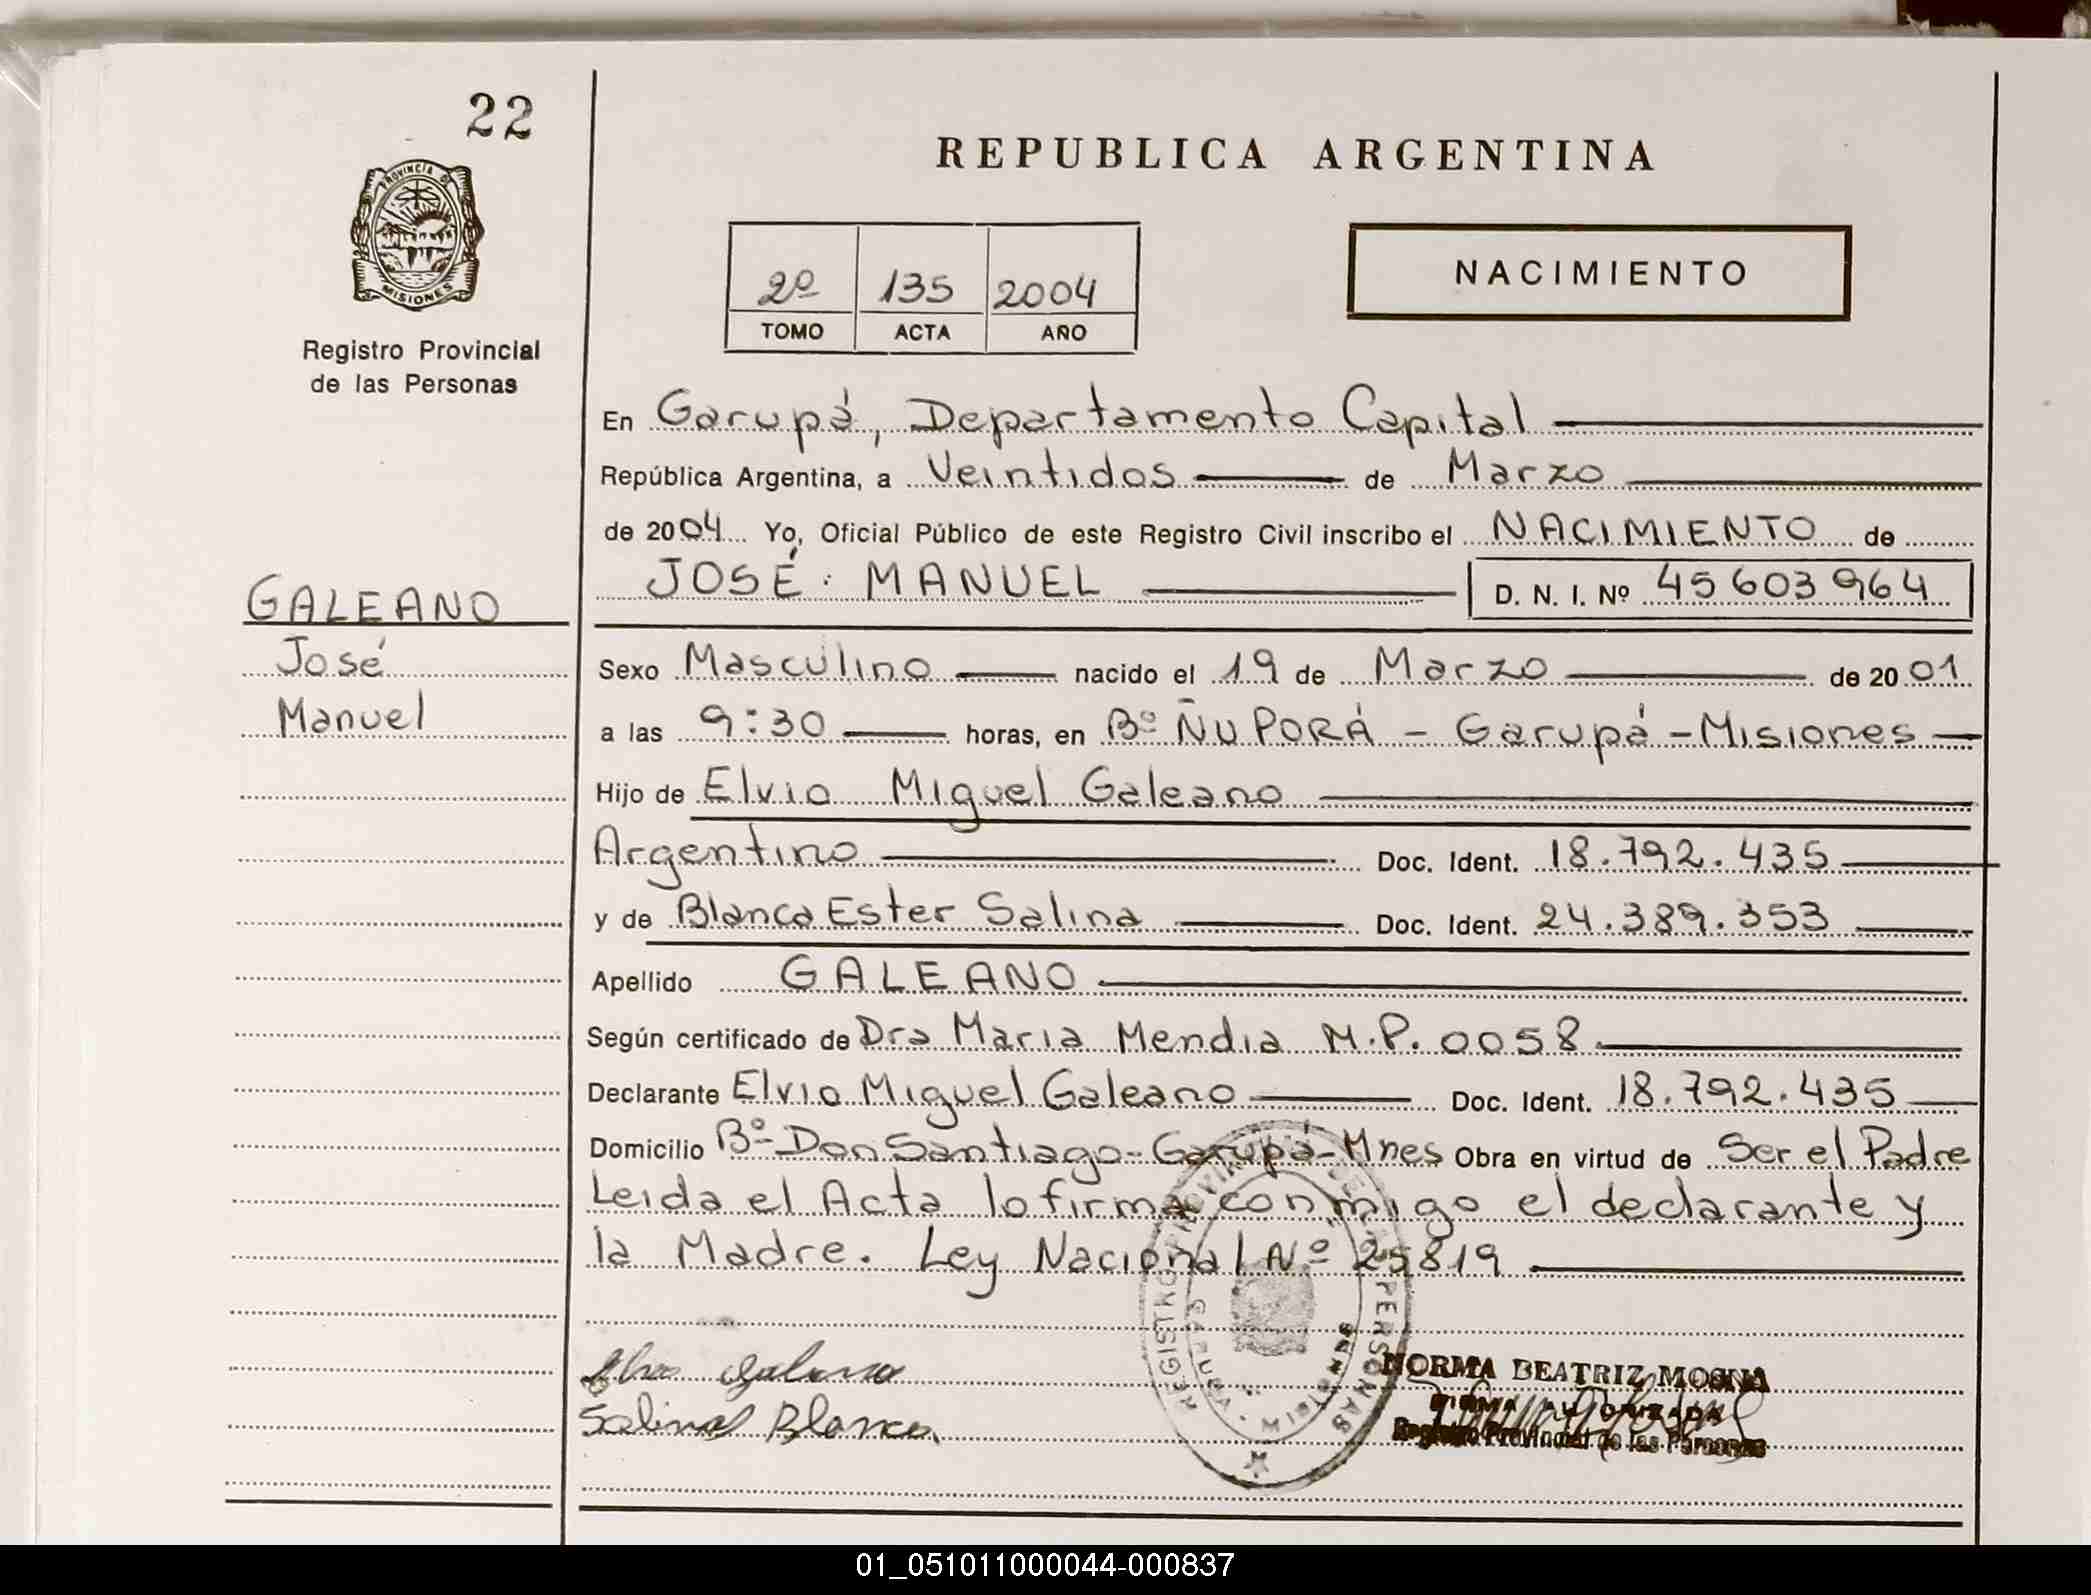 22
REPUBLICA ARGENTINA
PROVINCIA DE
MISIONES
Registro Provincial
de las Personas
2º 135 2004
TOMO ACTA AÑO
NACIMIENTO
En Garupá, Departamento Capital
República Argentina, a Veintidos de Marzo
de 2004 Yo, Oficial Público de este Registro Civil inscribo el NACIMIENTO de
JOSÉ MANUEL D. N. I. Nº 45603964
GALEANO
José
Manuel
Sexo Masculino nacido el 19 de Marzo de 2001
a las 9:30 horas, en Bº ÑU PORÁ - Garupá - Misiones
Hijo de Elvio Miguel Galeano
Argentino Doc. Ident. 18.792.435
y de Blanca Ester Salina Doc. Ident. 24.389.353
Apellido GALEANO
Según certificado de Dra Maria Mendia M.P. 0058
Declarante Elvio Miguel Galeano Doc. Ident. 18.792.435
Domicilio Bº Don Santiago - Garupá - Mnes Obra en virtud de Ser el Padre
Leida el Acta lo firma conmigo el declarante y
la Madre. Ley Nacional Nº 25819
REGISTRO PROVINCIAL DE LAS PERSONAS
GARUPA - MISIONES
Salinas Blanca
NORMA BEATRIZ MOSNA
FIRMA AUTORIZADA
Registro Provincial de las Personas
01_051011000044-000837